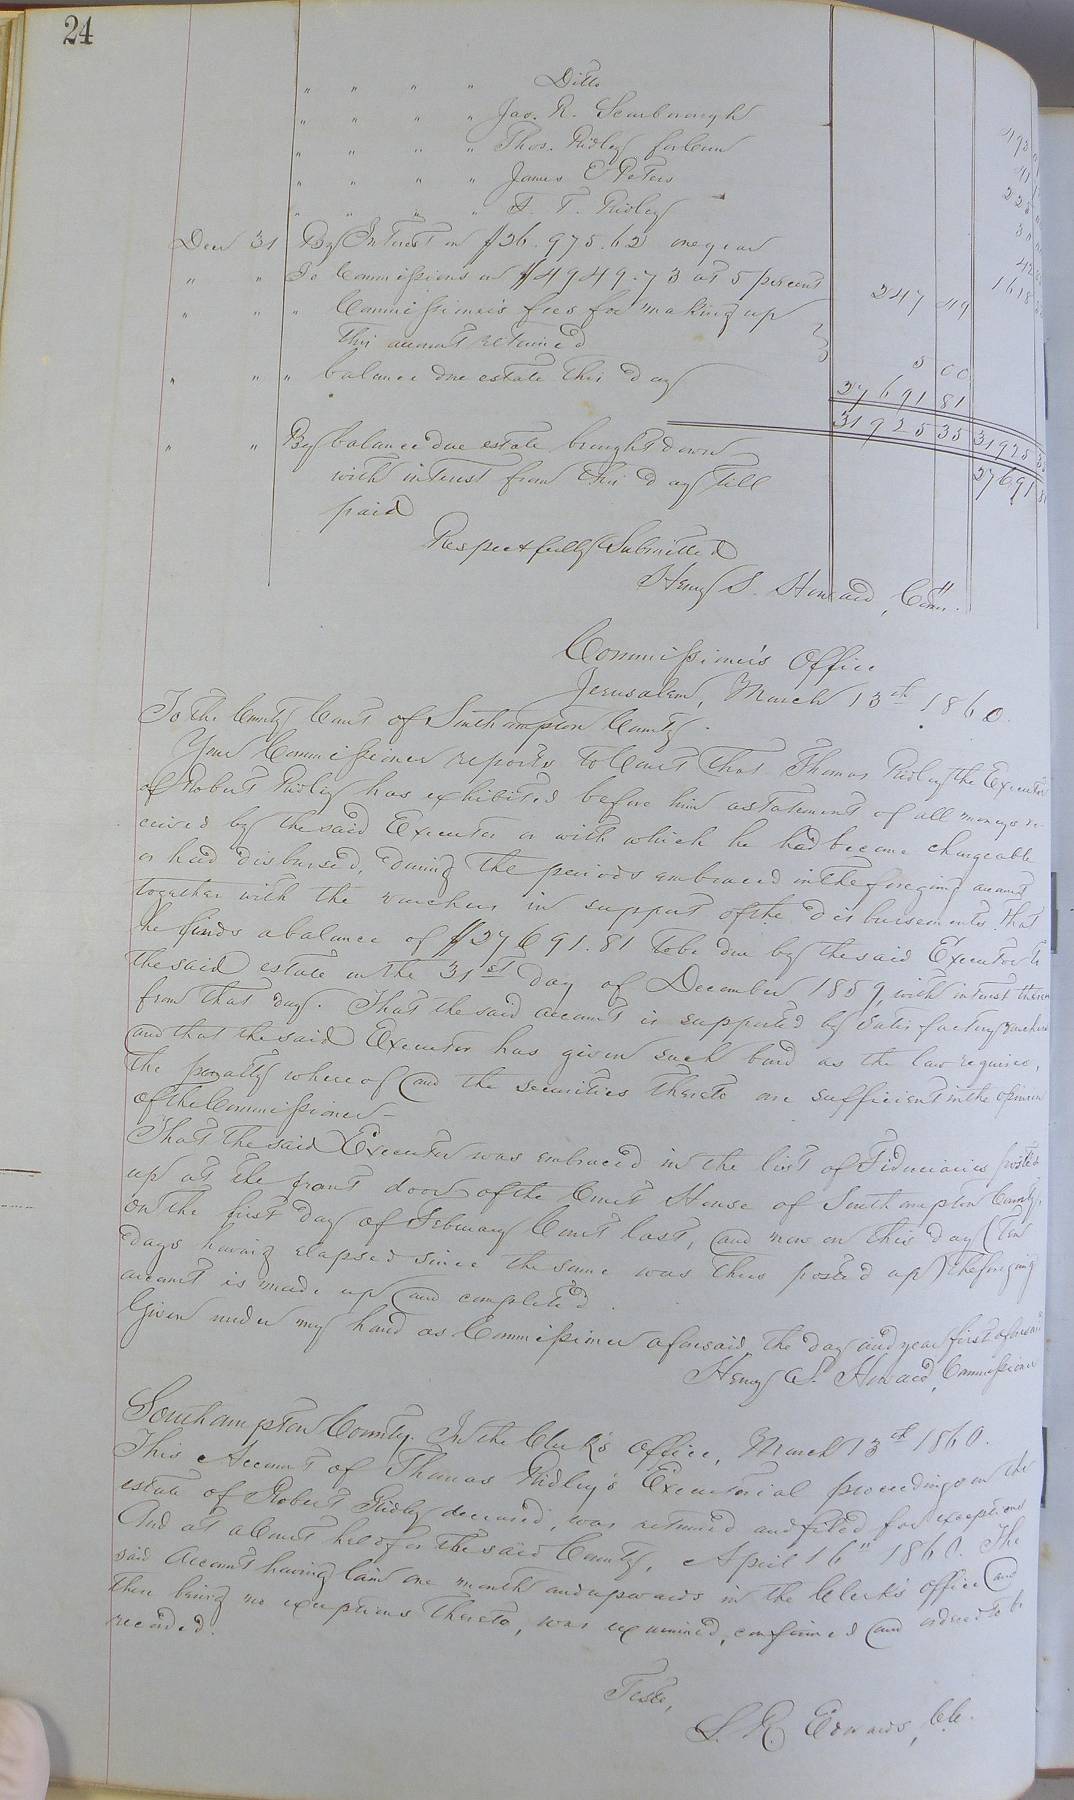 24
" " " " Ditto
" " " " Jas. R. Scarborough
" " " " Thos. Ridley for Corn
" " " " James E Peters
" " " " T. Ridley
Decr 31 By Interest on $26.975.62 one year
" " To Commissions on $4949.73 at 5 percent 247 49 1618
" " " Commissioner's fees for making up
this account returned 5 00
" " " balance due estate this day 27691 81
31925 35 31925 35
" " By balance due estate brought down 27691
with interest from this day till
paid
Respectfully Submitted
Henry S. Howard, Comr.
Commissioner's Office
Jerusalem, March 13th 1860.
To the County Court of Southampton County.
Your Commissioner reports to Court that Thomas Ridley the Executor
of Robert Ridley has exhibited before him a statement of all moneys re-
ceived by the said Executor or with which he had become chargeable
or had disbursed, during the periods embraced in the foregoing account
together with the vouchers in support of the disbursements. That
he finds a balance of $27691.81 to be due by the said Executor to
the said estate on the 31st day of December 1859, with interest thereon
from that day. That the said account is supported by satisfactory vouchers
and that the said Executor has given such bond as the law requires,
the penalty whereof and the securities thereto are sufficient in the opinion
of the Commissioner -
That the said Executor was embraced in the list of Fiduciaries posted
up at the front door of the Court House of Southampton County,
on the first day of February Court last, and now on this day (Ten
days having elapsed since the same was thus posted up) the foregoing
account is made up and completed.
Given under my hand as Commissioner aforesaid the day and year first aforesaid
Henry S. Howard, Commissioner
Southampton County. In the Clerk's Office, March 13th 1860.
This Account of Thomas Ridley's Executorial proceedings on the
estate of Robert Ridley deceased, was returned and filed for exceptions
And at a Court held for the said County, April 16th 1860. The
said Account having lain one month and upwards in the Clerk's office and
there being no exceptions thereto, was examined, confirmed and ordered to be
recorded.
Teste,
L. R. Edwards, C.C.